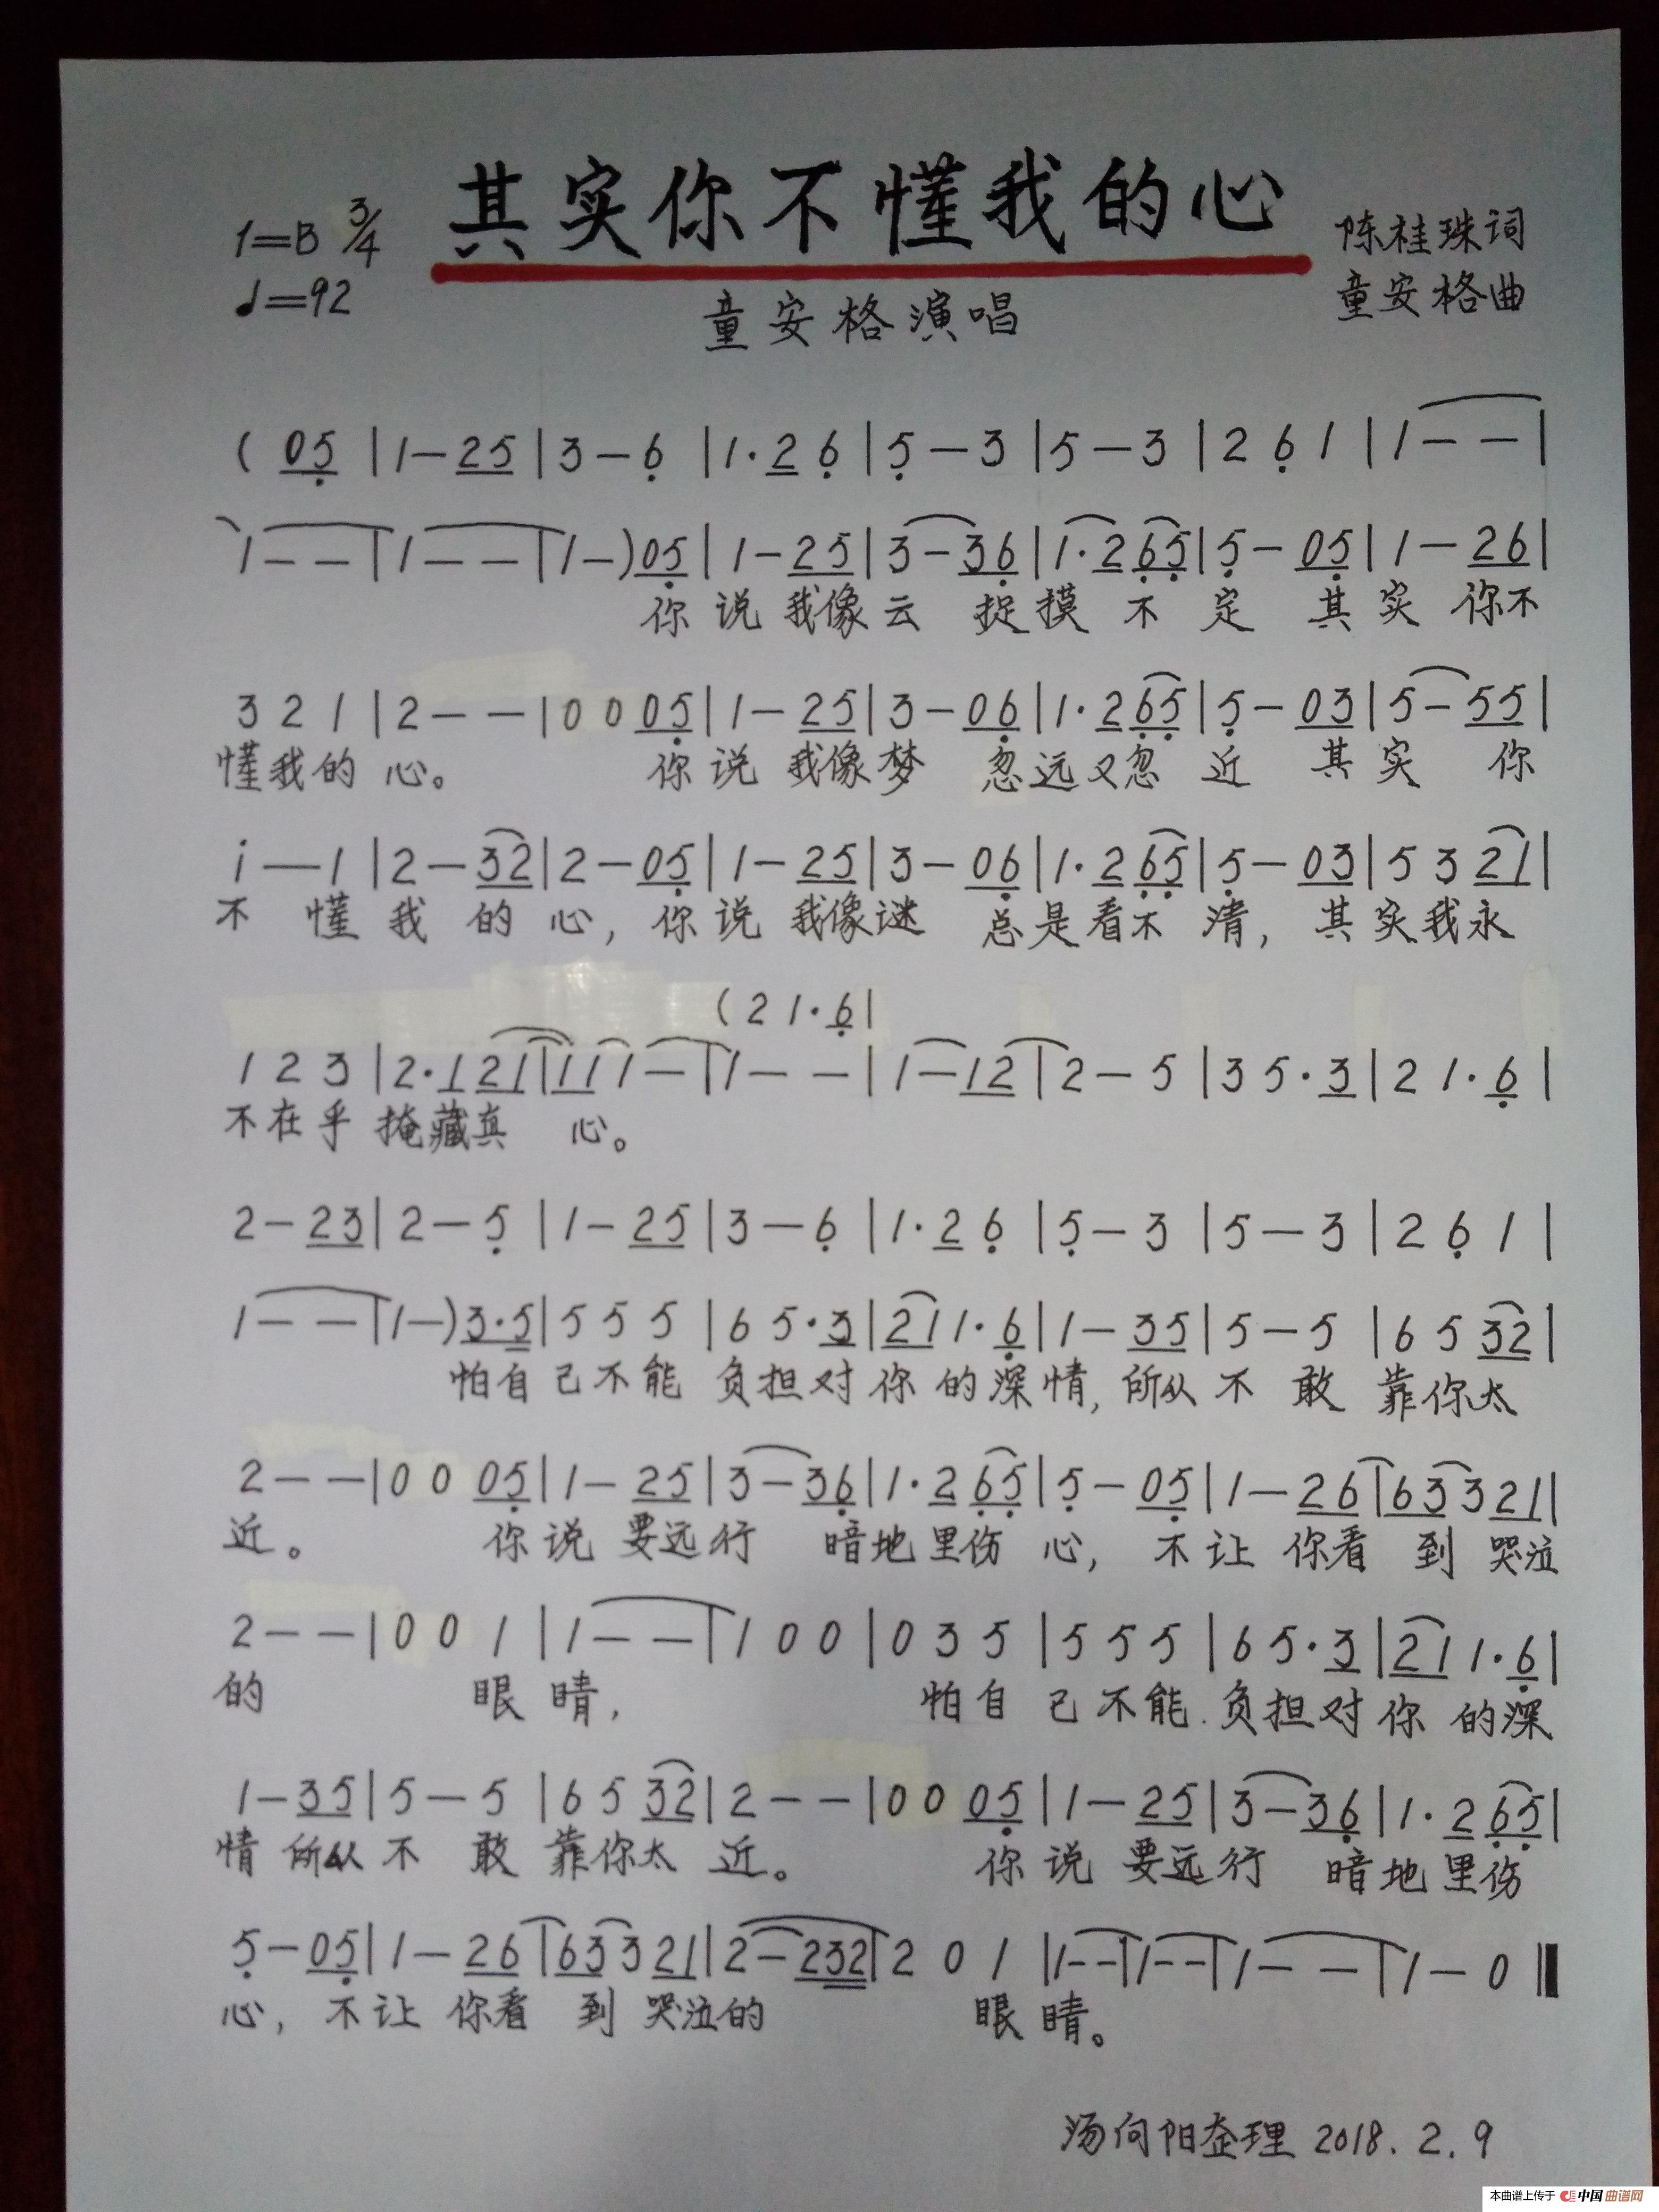 其实你不懂我的心
1=B 3/4
♩=92
陈桂珠词
童安格曲
童安格演唱
( 05 | 1 — 25 | 3 — 6 | 1· 2 6 | 5 — 3 | 5 — 3 | 2 6 1 | 1 — — |
1 — — | 1 — — | 1 — ) 05 | 1 — 25 | 3 — 36 | 1· 2 65 | 5 — 05 | 1 — 26 |
你 说 我像云 捉摸 不 定 其 实 你不
3 2 1 | 2 — — | 0 0 05 | 1 — 25 | 3 — 06 | 1· 2 65 | 5 — 03 | 5 — 55 |
懂我的 心。 你 说 我像梦 忽远又忽 近 其 实 你
i — 1 | 2 — 32 | 2 — 05 | 1 — 25 | 3 — 06 | 1· 2 65 | 5 — 03 | 5 3 21 |
不 懂 我 的 心, 你 说 我像谜 总是看不 清, 其 实我永
( 2 1· 6 |
1 2 3 | 2· 1 21 | 11 1 — | 1 — — | 1 — 12 | 2 — 5 | 3 5· 3 | 2 1· 6 |
不在乎 掩藏真 心。
2 — 23 | 2 — 5 | 1 — 25 | 3 — 6 | 1· 2 6 | 5 — 3 | 5 — 3 | 2 6 1 |
1 — — | 1 — ) 3·5 | 5 5 5 | 6 5· 3 | 21 1· 6 | 1 — 35 | 5 — 5 | 6 5 32 |
怕自 己不能 负担对 你 的深情, 所从 不 敢 靠你太
2 — — | 0 0 05 | 1 — 25 | 3 — 36 | 1· 2 65 | 5 — 05 | 1 — 26 | 63 3 21 |
近。 你 说 要远行 暗地里伤 心, 不 让 你看 到 哭泣
2 — — | 0 0 1 | 1 — — | 1 0 0 | 0 3 5 | 5 5 5 | 6 5· 3 | 21 1· 6 |
的 眼 睛, 怕 自 己 不能 负担对 你 的深
1 — 35 | 5 — 5 | 6 5 32 | 2 — — | 0 0 05 | 1 — 25 | 3 — 36 | 1· 2 65 |
情 所从 不 敢 靠你太 近。 你 说 要远行 暗地里伤
5 — 05 | 1 — 26 | 63 3 21 | 2 — 232 | 2 0 1 | 1 — — | 1 — — | 1 — — | 1 — 0 ‖
心, 不 让 你看 到 哭泣的 眼 睛。
汤向阳整理 2018.2.9
本曲谱上传于 中国曲谱网